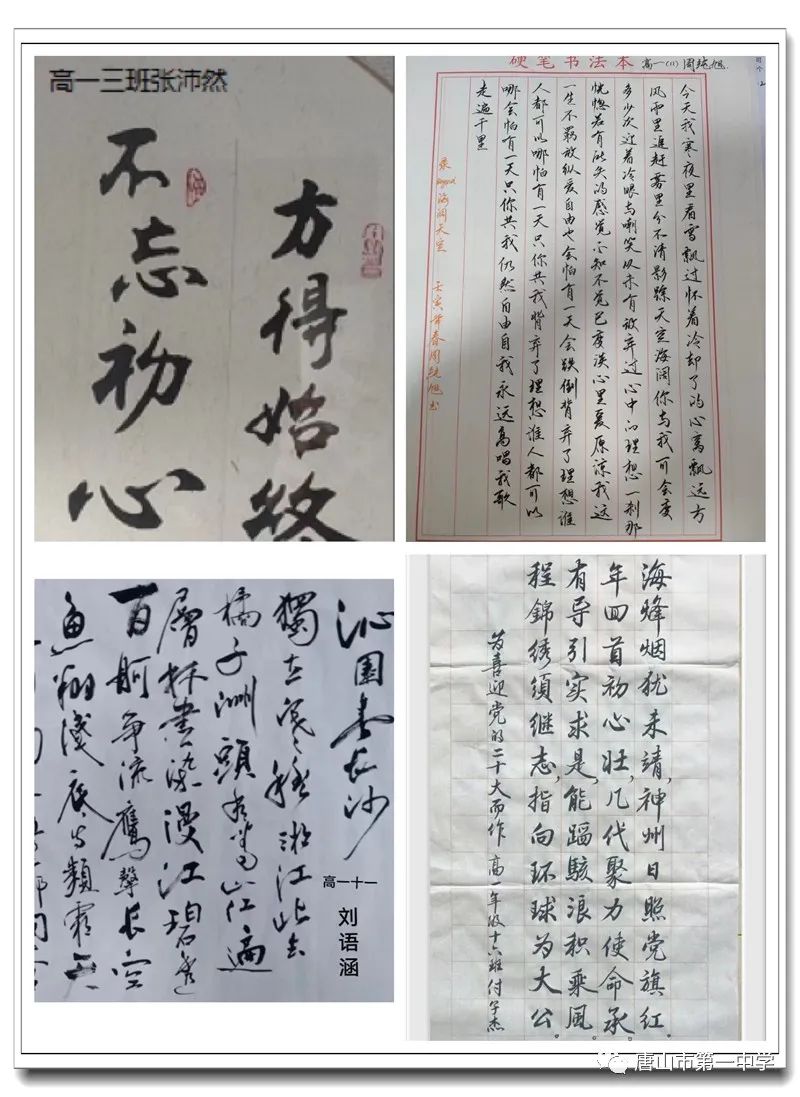 高一三班张沛然
不忘初心
方得始终
硬笔书法本 高一(11)周旭
今天我寒夜里看雪飘过怀着冷却了的心窝飘远方
风雨里追赶雾里分不清影踪天空海阔你与我可会变
多少次迎着冷眼与嘲笑从未有放弃过心中的理想一刹那
恍惚若有所失的感觉不知不觉已变淡心里爱原谅我这
一生不羁放纵爱自由也会怕有一天会跌倒背弃了理想谁
人都可以哪怕有一天只你共我背弃了理想谁人都可以
哪会怕有一天只你共我仍然自由自我永远高唱我歌
走遍千里
录Beyond海阔天空 壬寅年春周旭书
沁園春长沙
獨立寒秋湘江北去
橘子洲頭看萬山红遍
層林盡染漫江碧透
百舸争流鹰擊长空
鱼翔淺底万類霜天
高一十一
刘语涵
海烽烟犹未靖,神州日照党旗红。
年回首初心壮,几代聚力使命承。
有导引实求是,能蹈骇浪积乘风。
程錦绣须继志,指向环球为大公。
为喜迎党的二十大而作 高一年级十六班付子杰
唐山市第一中学